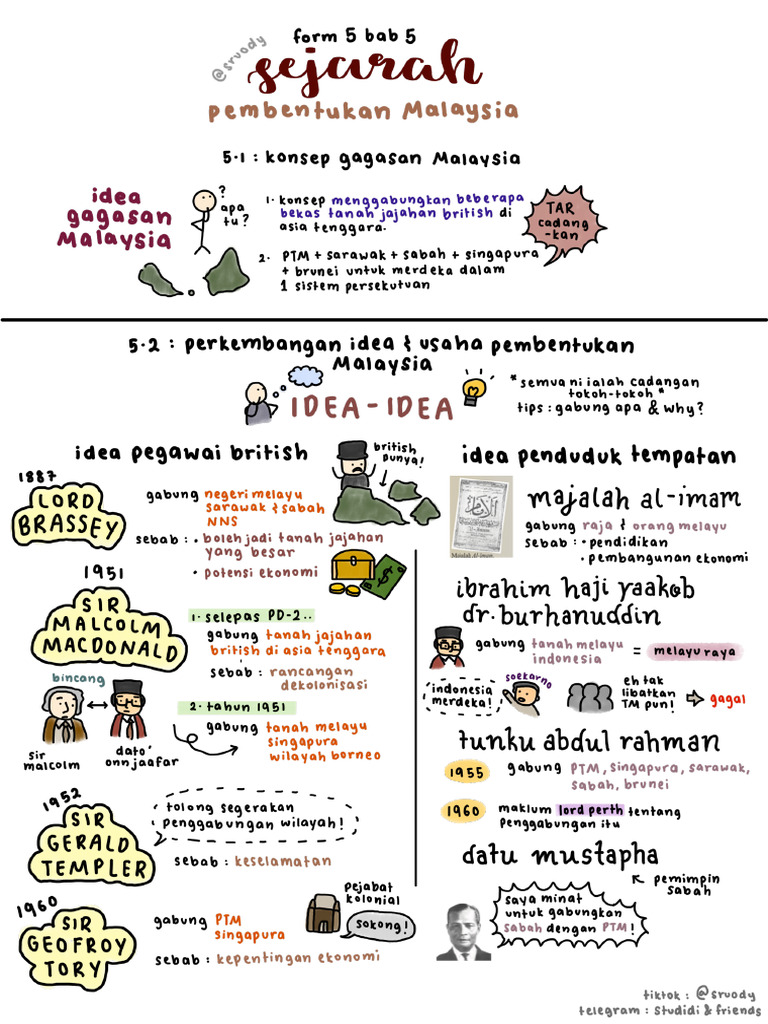 form 5 bab 5
@sruody
sejarah
pembentukan Malaysia
5.1 : konsep gagasan Malaysia
idea
gagasan
Malaysia
?
apa
tu?
1. konsep menggabungkan beberapa
bekas tanah jajahan british di
asia tenggara.
2. PTM + sarawak + sabah + singapura
+ brunei untuk merdeka dalam
1 sistem persekutuan
TAR
cadang
-kan
5.2 : perkembangan idea & usaha pembentukan
Malaysia
IDEA-IDEA
*semua ni ialah cadangan
tokoh-tokoh*
tips : gabung apa & why?
idea pegawai british
british
punya!
1887
LORD
BRASSEY
gabung negeri melayu
sarawak & sabah
NNS
sebab : • boleh jadi tanah jajahan
yang besar
• potensi ekonomi
$
1951
SIR
MALCOLM
MACDONALD
1. selepas PD-2..
gabung tanah jajahan
british di asia tenggara
sebab : rancangan
dekolonisasi
bincang
sir
malcolm
dato'
onn jaafar
2. tahun 1951
gabung tanah melayu
singapura
wilayah borneo
1952
SIR
GERALD
TEMPLER
tolong segerakan
penggabungan wilayah!
sebab : keselamatan
1960
SIR
GEOFROY
TORY
gabung PTM
singapura
sebab : kepentingan ekonomi
pejabat
kolonial
sokong!
idea penduduk tempatan
الإمام
Majalah Al-imam
majalah al-imam
gabung raja & orang melayu
sebab : • pendidikan
• pembangunan ekonomi
ibrahim haji yaakob
dr. burhanuddin
gabung tanah melayu
indonesia
= melayu raya
indonesia
merdeka!
soekarno
eh tak
libatkan
TM pun!
gagal
tunku abdul rahman
1955
gabung PTM, singapura, sarawak,
sabah, brunei
1960
maklum lord perth tentang
penggabungan itu
datu mustapha
pemimpin
sabah
saya minat
untuk gabungkan
sabah dengan PTM!
tiktok : @sruody
telegram : studidi & friends